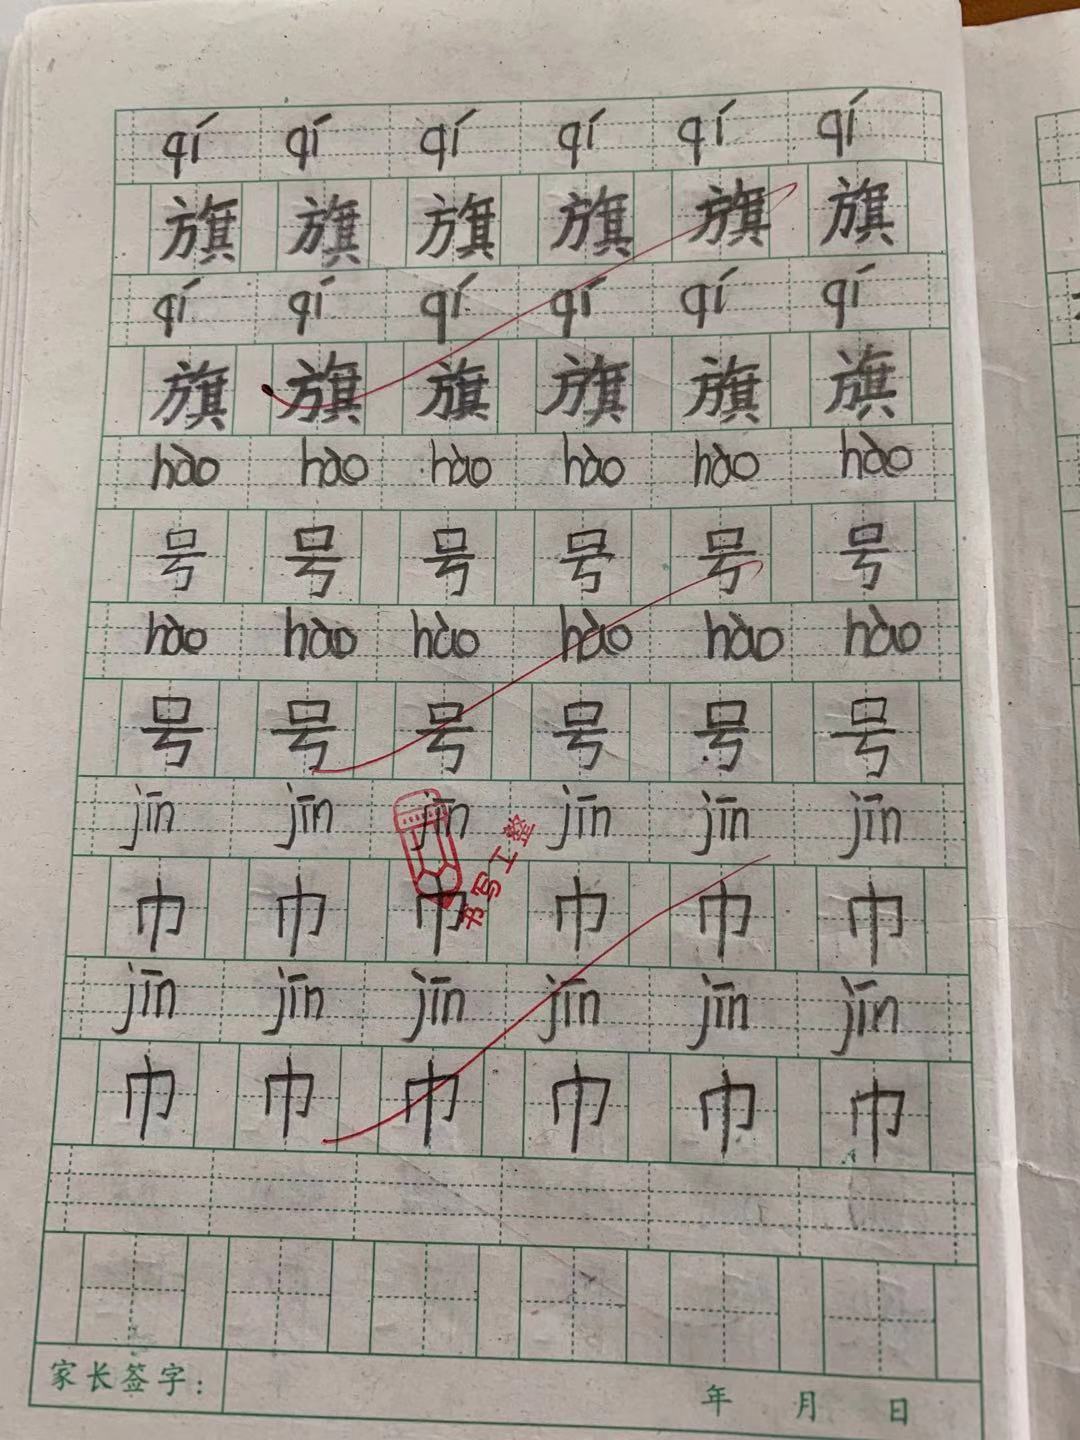 qí qí qí qí qí qí
旗 旗 旗 旗 旗 旗
qí qí qí qí qí qí
旗 旗 旗 旗 旗 旗
hào hào hào hào hào hào
号 号 号 号 号 号
hào hào hào hào hào hào
号 号 号 号 号 号
jīn jīn jīn jīn jīn jīn
巾 巾 巾 巾 巾 巾
书写工整
jīn jīn jīn jīn jīn jīn
巾 巾 巾 巾 巾 巾
家长签字: 年 月 日